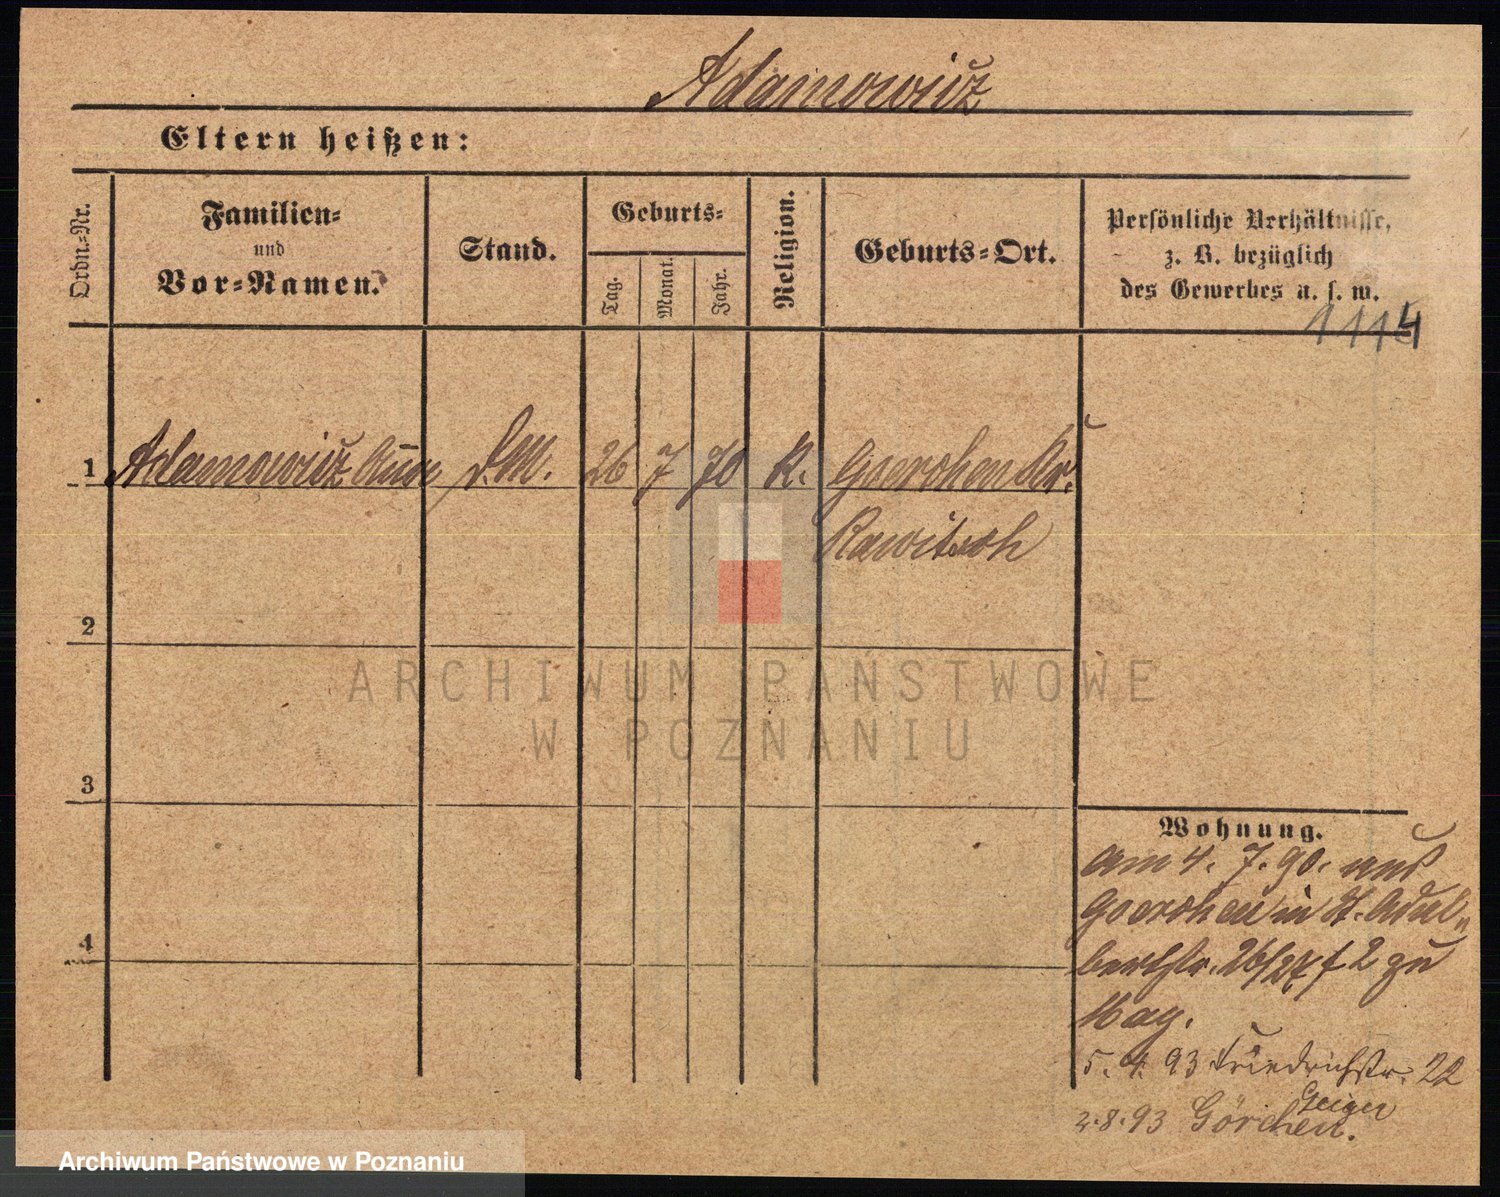 Adamowicz
Eltern heißen:
Ordn.-Nr.
Familien-
und
Vor-Namen.
Stand.
Geburts-
Tag.
Monat.
Jahr.
Religion.
Geburts-Ort.
Persönliche Verhältnisse,
z. B. bezüglich
des Gewerbes u. s. w.
1114
1 Adamowicz Anna D.M. 26 7 70 K. Goerchen Kr.
Rawitsch
2
3
4
Wohnung.
am 4. 7. 90. aus
Goerchen in St. Adal-
bertstr. 26/27 f 2 zu
May.
5. 4. 93 Friedrichstr. 22
Geiger
2.8.93 Görchen.
ARCHIWUM PAŃSTWOWE
W POZNANIU
Archiwum Państwowe w Poznaniu